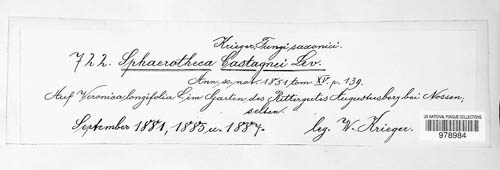 Krieger, Fungi saxonici.
722. Sphaerotheca Castagnei Lév.
Ann. sc. nat. 1851, tom XV. p. 139.
Auf Veronica longifolia L, im Garten des Rittergutes Augustusberg bei Nossen,
selten.
September 1881, 1885, u. 1887. leg. W. Krieger.
US NATIONAL FUNGUS COLLECTIONS
978984